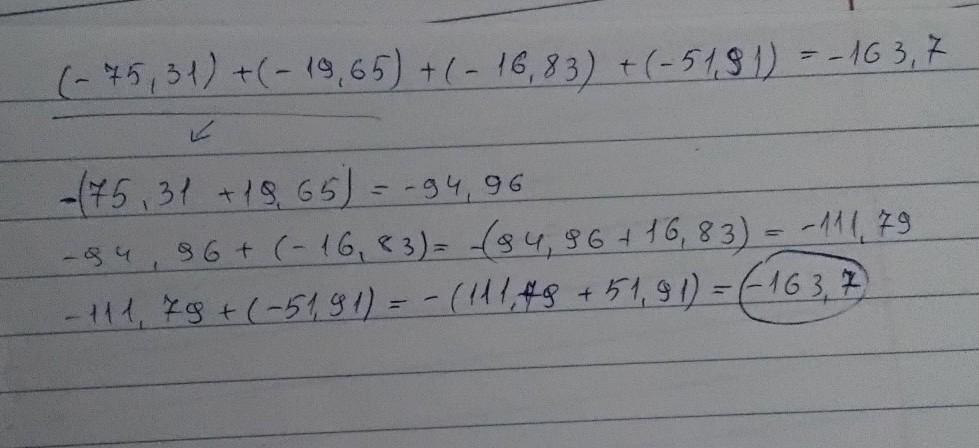 (-75,31) +(-19,65) +(-16,83) +(-51,91) = -163,7
-(75,31 +19,65) = -94,96
-94,96 + (-16,83) = -(94,96 + 16,83) = -111,79
-111,79 + (-51,91) = -(111,79 + 51,91) = -163,7